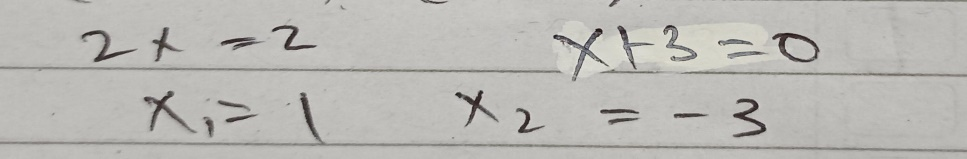 2x = 2 x + 3 = 0
x₁ = 1 x₂ = -3